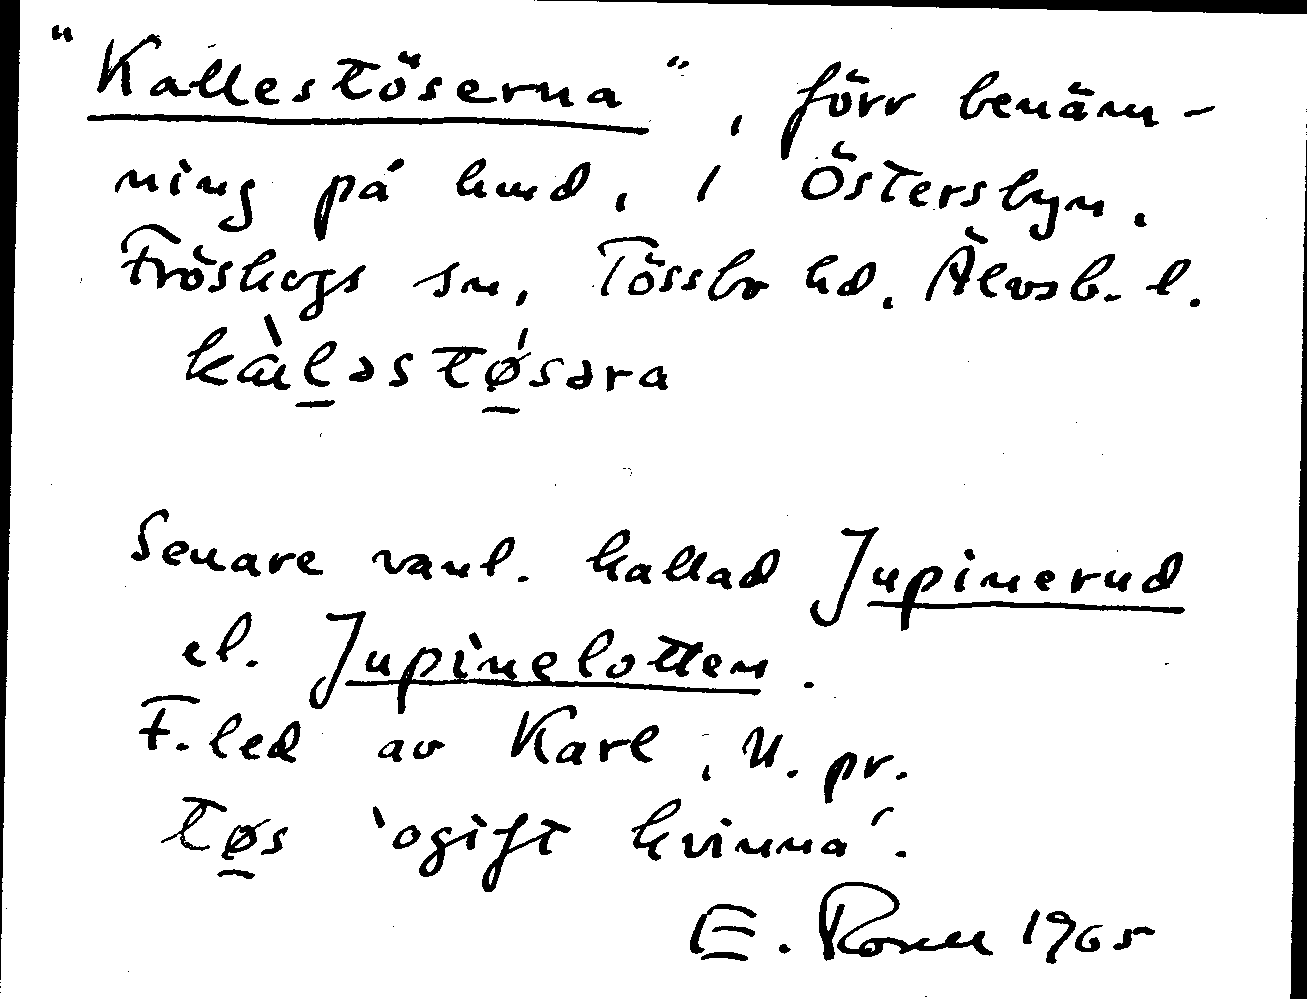 "Kallestöserna", förr benäm-
ning på hmd, i Österbyn,
Fröskogs sn, Tössbo hd, Älvsb. l.
kàləstø´səra
Senare vanl. kallad Jupinerud
el. Jupinelotten.
F.led av Karl, n. pr.
tøs 'ogift kvinna'.
E. 1965